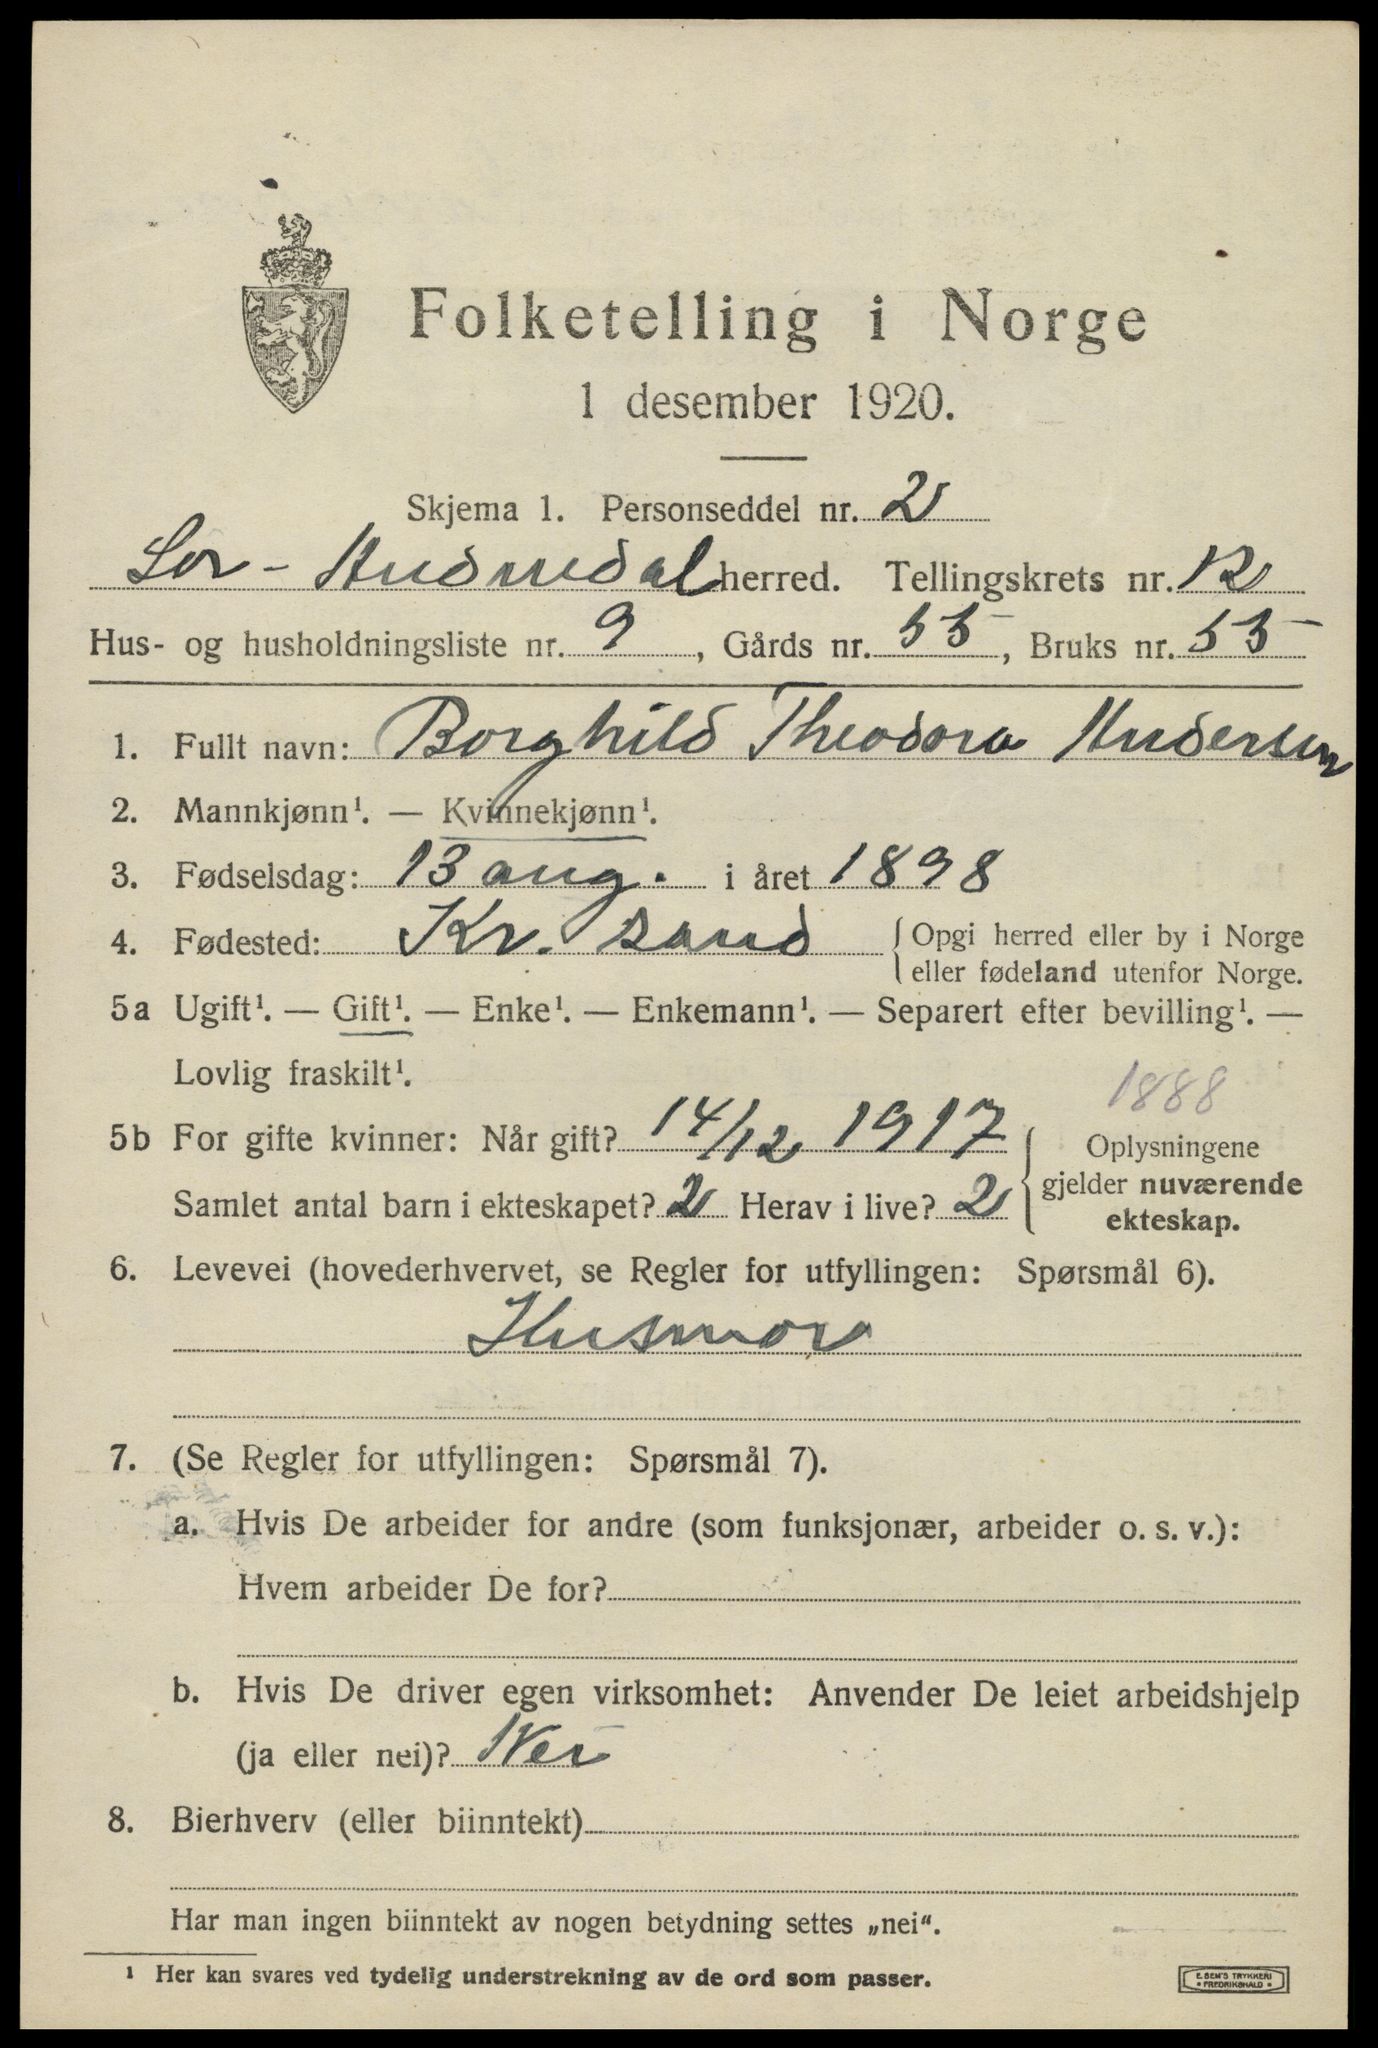 Folketelling i Norge
1 desember 1920.
Skjema 1. Personseddel nr. 2
Sør-Audnedal herred. Tellingskrets nr. 12
Hus- og husholdningsliste nr. 9, Gårds nr. 55, Bruks nr. 55
1. Fullt navn: Borghild Theodora Andersen
2. Mannkjønn¹. — Kvinnekjønn¹.
3. Fødselsdag: 13 aug. i året 1898
4. Fødested: Kr. sand {Opgi herred eller by i Norge
eller fødeland utenfor Norge.
5a Ugift¹. — Gift¹. — Enke¹. — Enkemann¹. — Separert efter bevilling¹. —
Lovlig fraskilt¹.
1888
5b For gifte kvinner: Når gift? 14/12 1917 { Oplysningene
Samlet antal barn i ekteskapet? 2 Herav i live? 2 gjelder nuværende
ekteskap.
6. Levevei (hovederhvervet, se Regler for utfyllingen: Spørsmål 6).
Husmor
7. (Se Regler for utfyllingen: Spørsmål 7).
a. Hvis De arbeider for andre (som funksjonær, arbeider o. s. v.):
Hvem arbeider De for?
b. Hvis De driver egen virksomhet: Anvender De leiet arbeidshjelp
(ja eller nei)? Nei
8. Bierhverv (eller biinntekt)
Har man ingen biinntekt av nogen betydning settes „nei“.
¹ Her kan svares ved tydelig understrekning av de ord som passer.
E. SEM'S TRYKKERI
• FREDRIKSHALD •